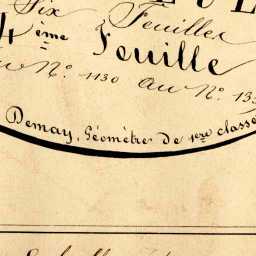 Six Feuilles
4ème Feuille
Du No. 1130 au No. 13
Demay, Géomètre de 1ère classe